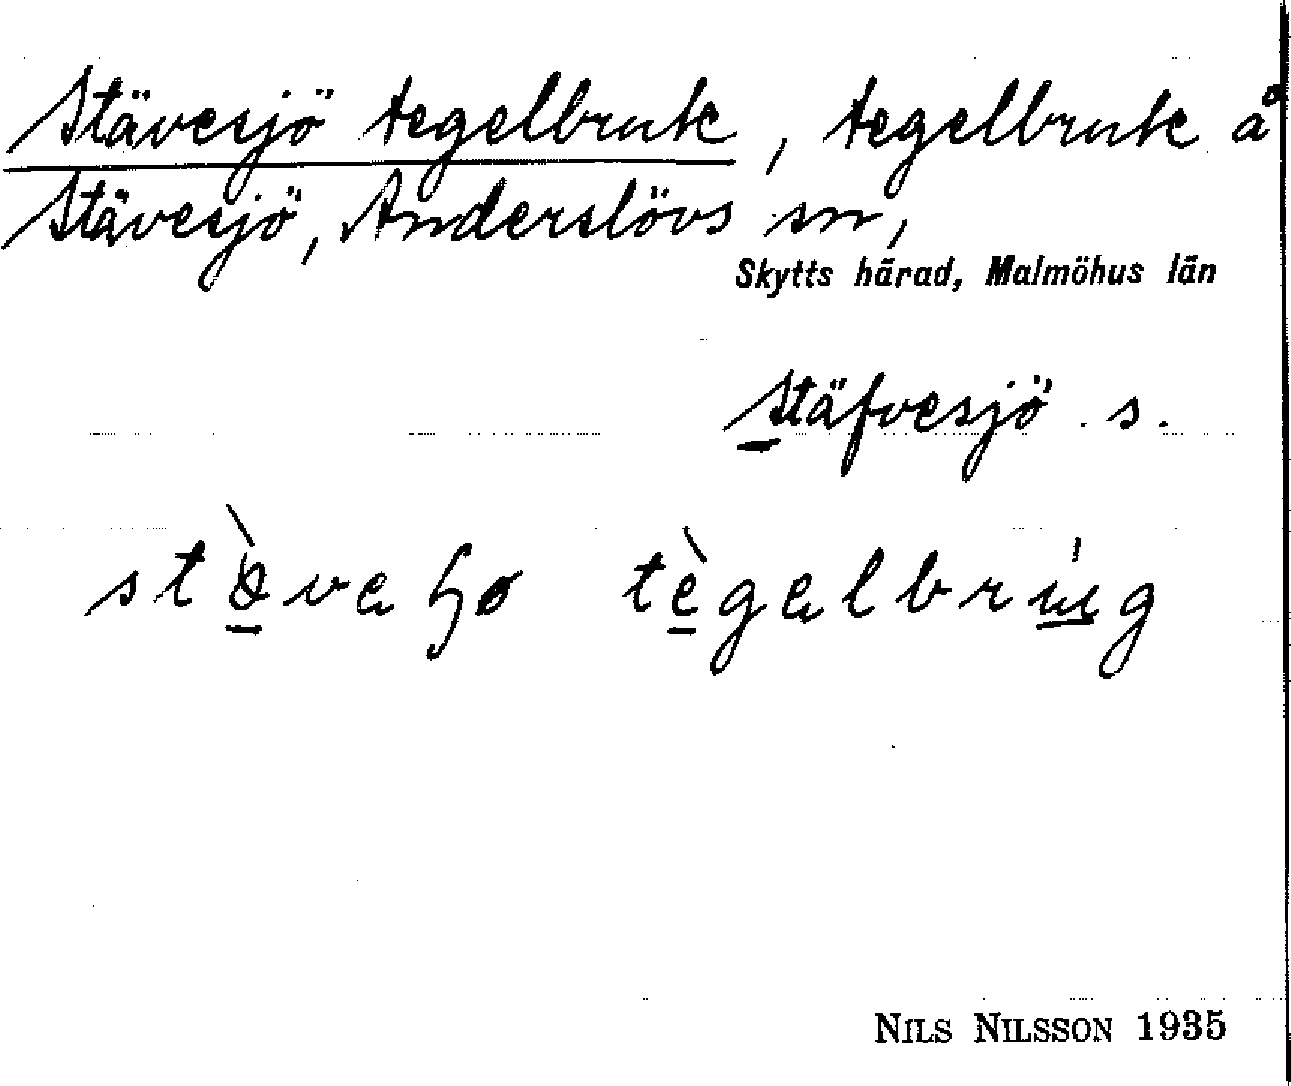 Stävesjö tegelbruk, tegelbruk å
Stävesjö, Anderslövs sn,
Skytts härad, Malmöhus län
Stäfvesjö s.
NILS NILSSON 1935